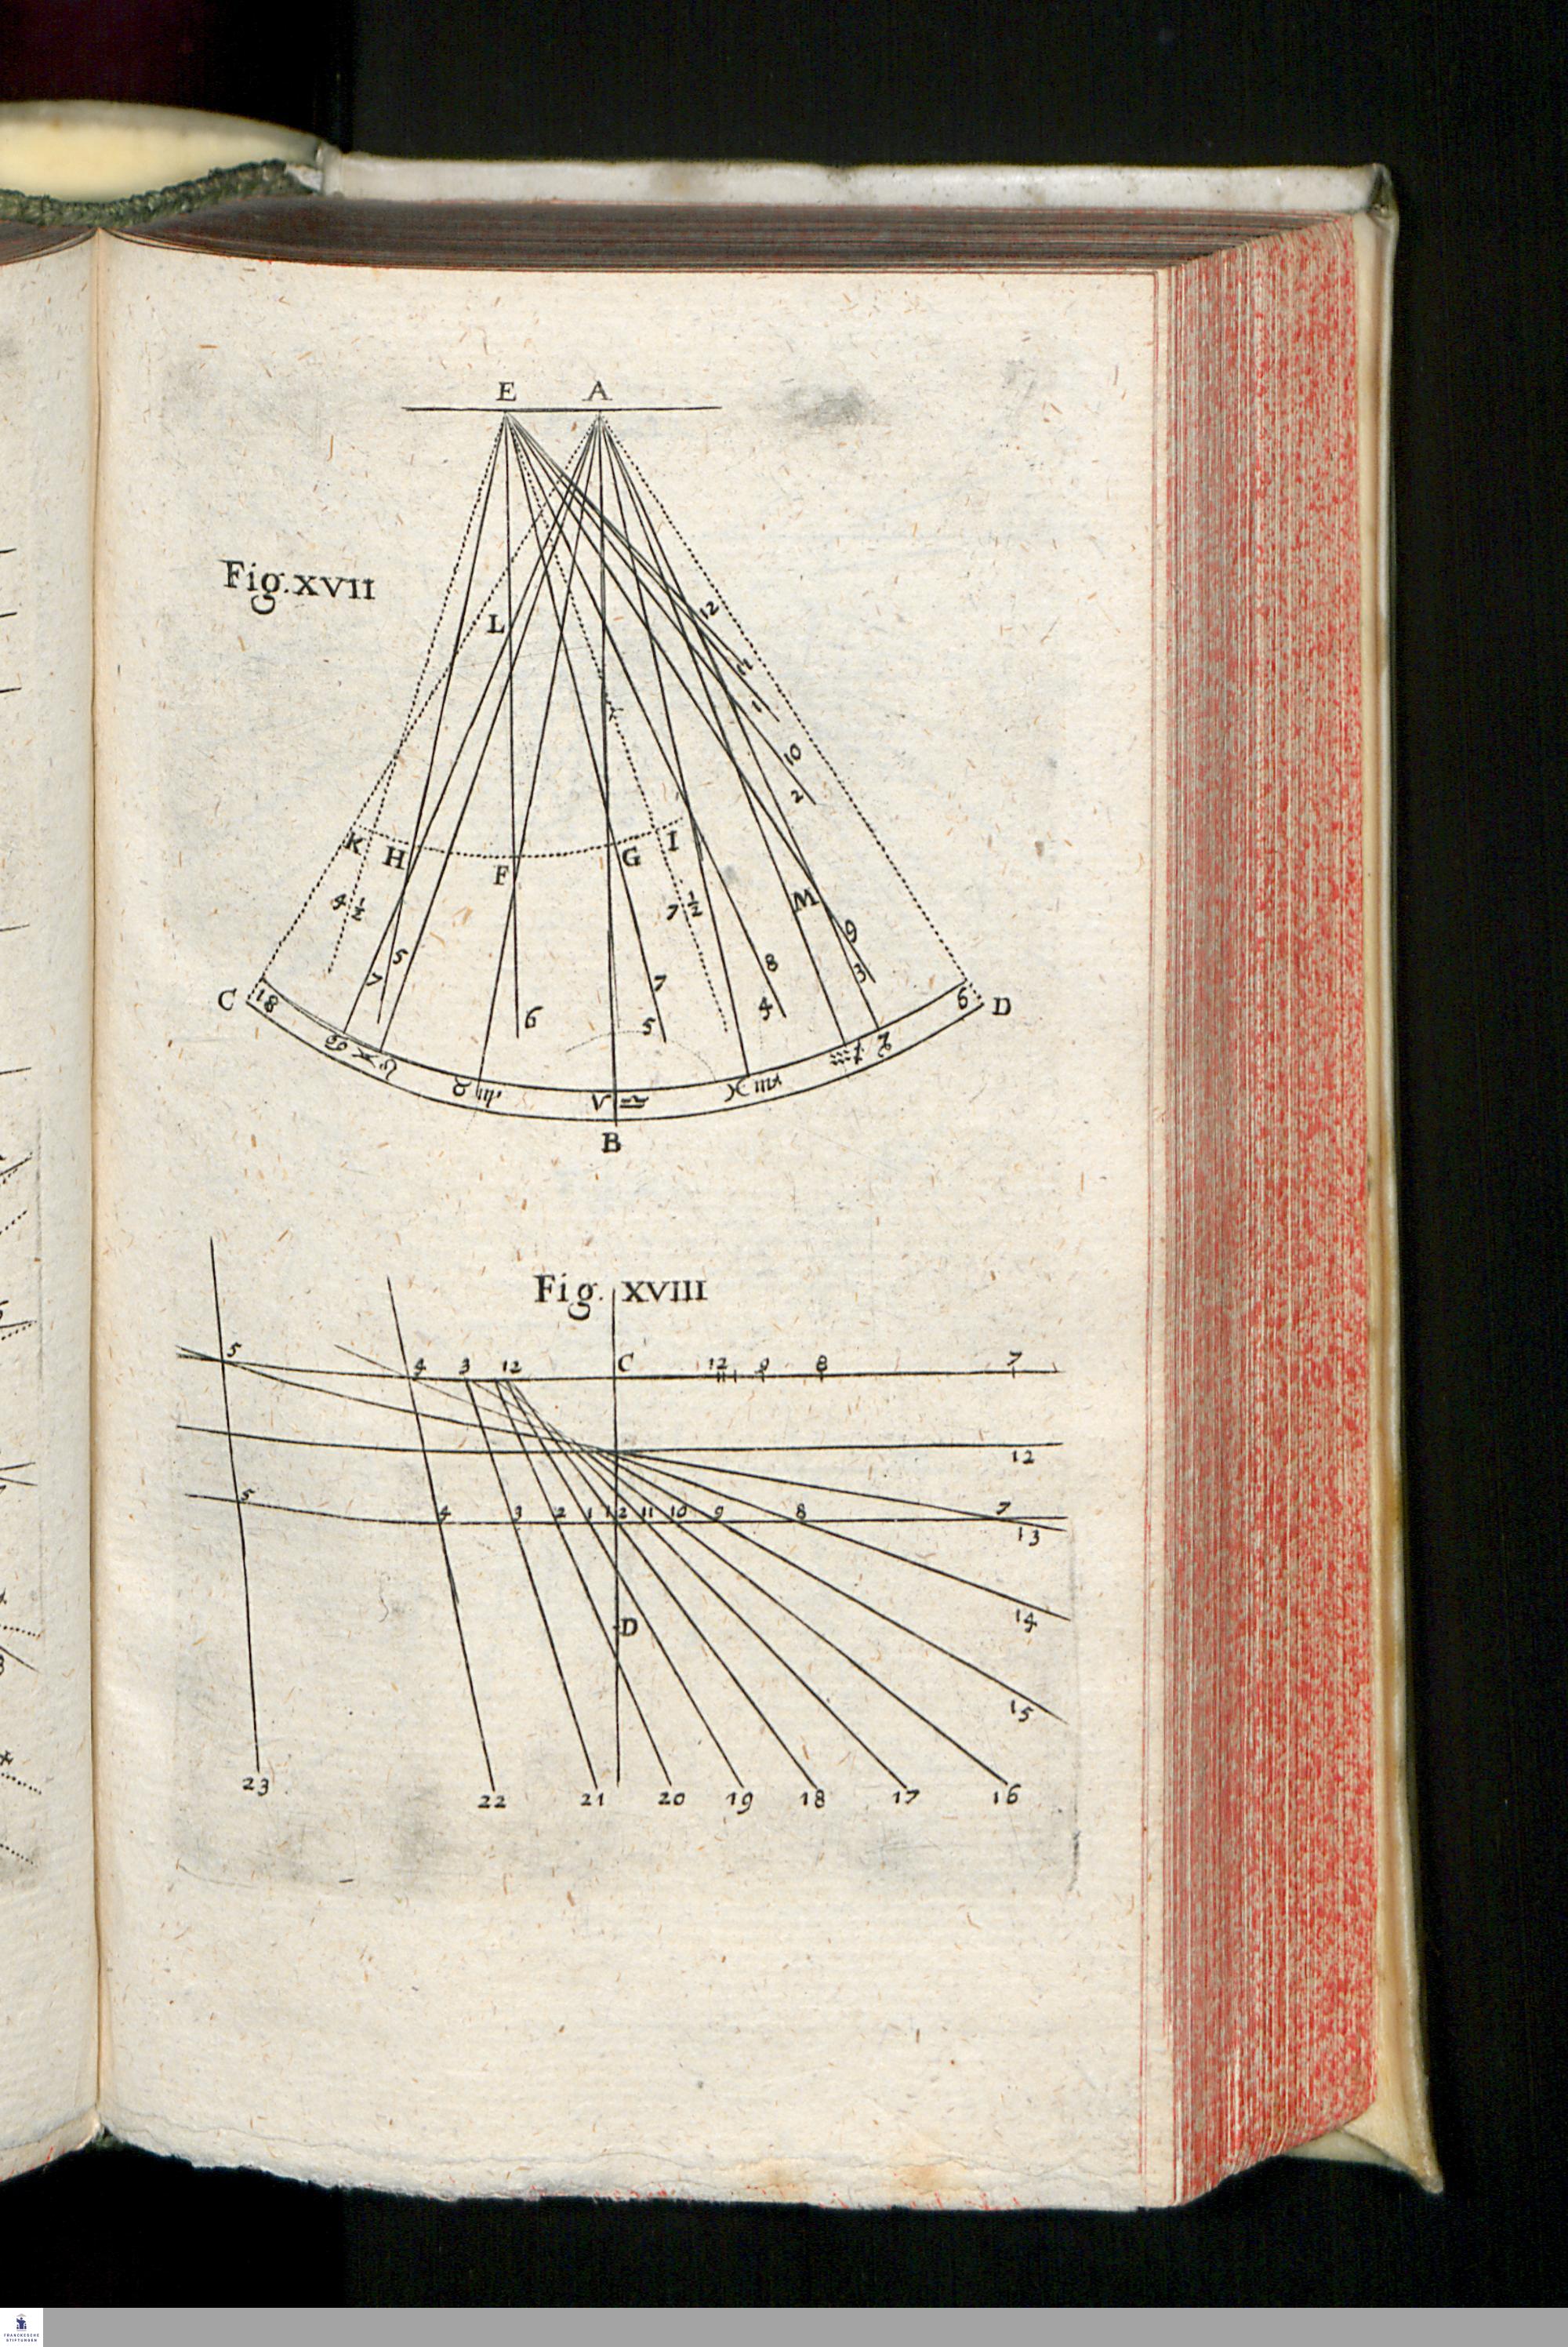 E A
Fig. XVII
12
L
11
1
10
2
K H F G I
4 1/2
7 1/2
M
9
5
7
8
3
4
6
7
5
C 18
6 D
♋ ♉ ♓ ♍ ♒ ♐
V ♎
B
Fig. XVIII
5 4 3 12 C 12 11 9 8 7
12
5 4 3 2 1 12 11 10 9 8 7
13
D
14
15
23 22 21 20 19 18 17 16
FRANCKESCHE
STIFTUNGEN